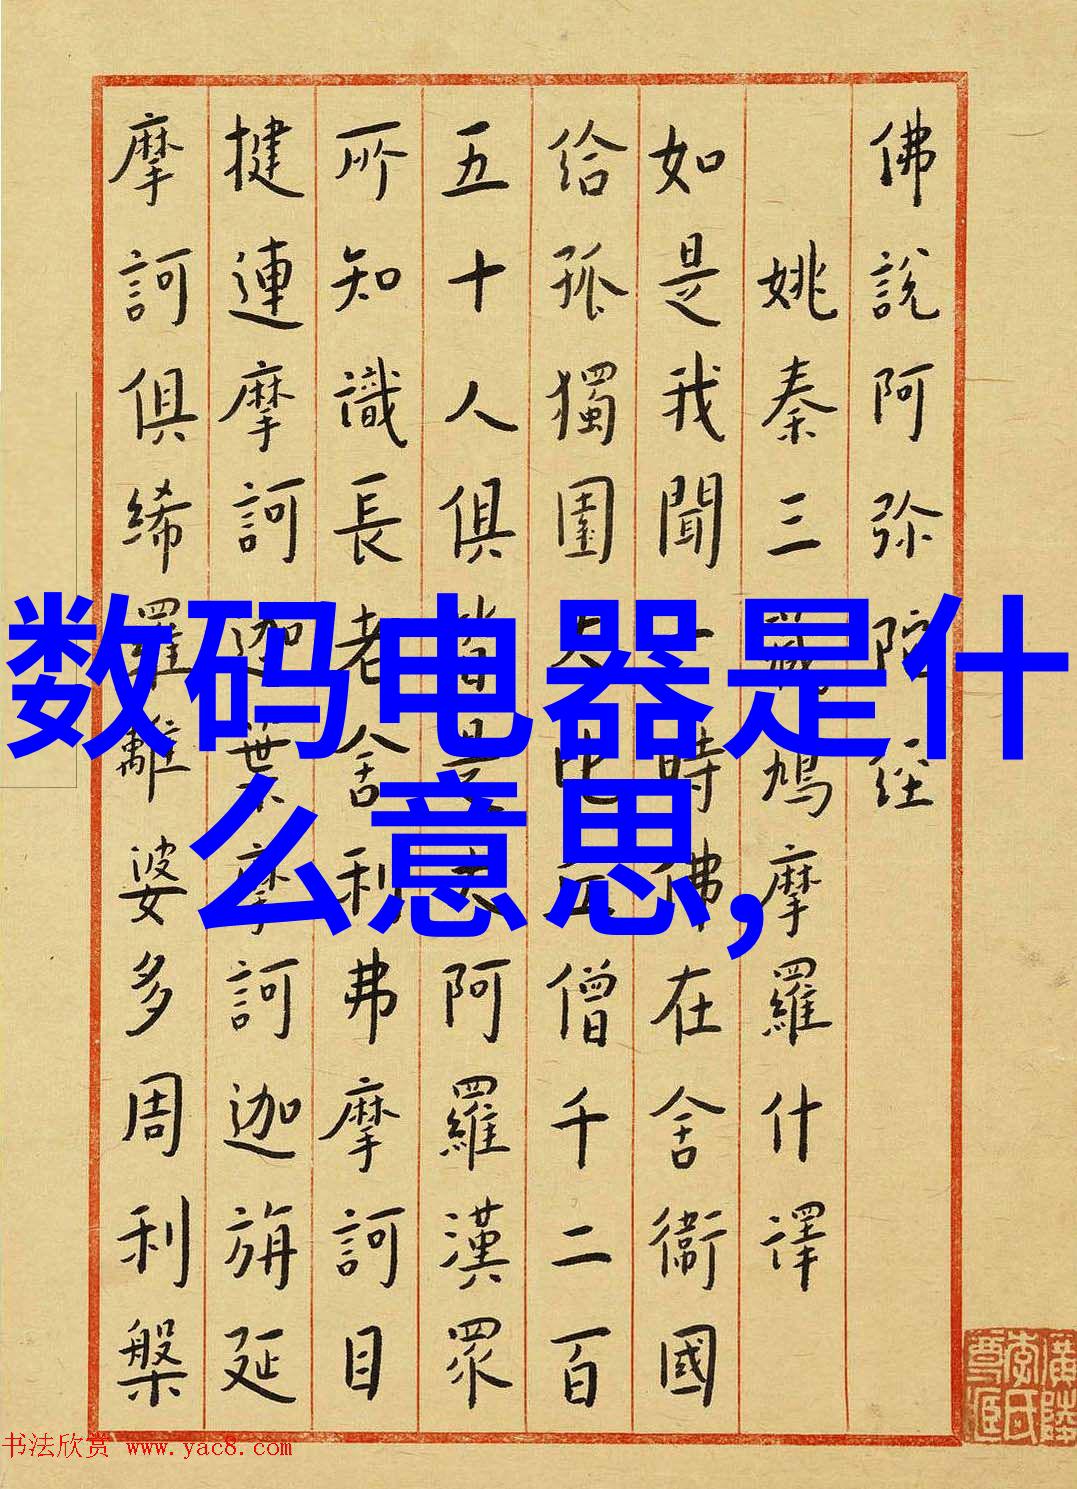 佛說阿弥陀經
姚秦三藏鳩摩羅什譯
如是我聞一時佛在舍衛國
給孤獨園大比丘僧千二百
五十人俱皆是大阿羅漢眾
所知識長老舍利弗摩訶目
揵連摩訶迦葉摩訶迦旃延
摩訶俱絺羅離婆多周利槃
数码电器是什
么意思,
书法欣赏 www.yac8.com